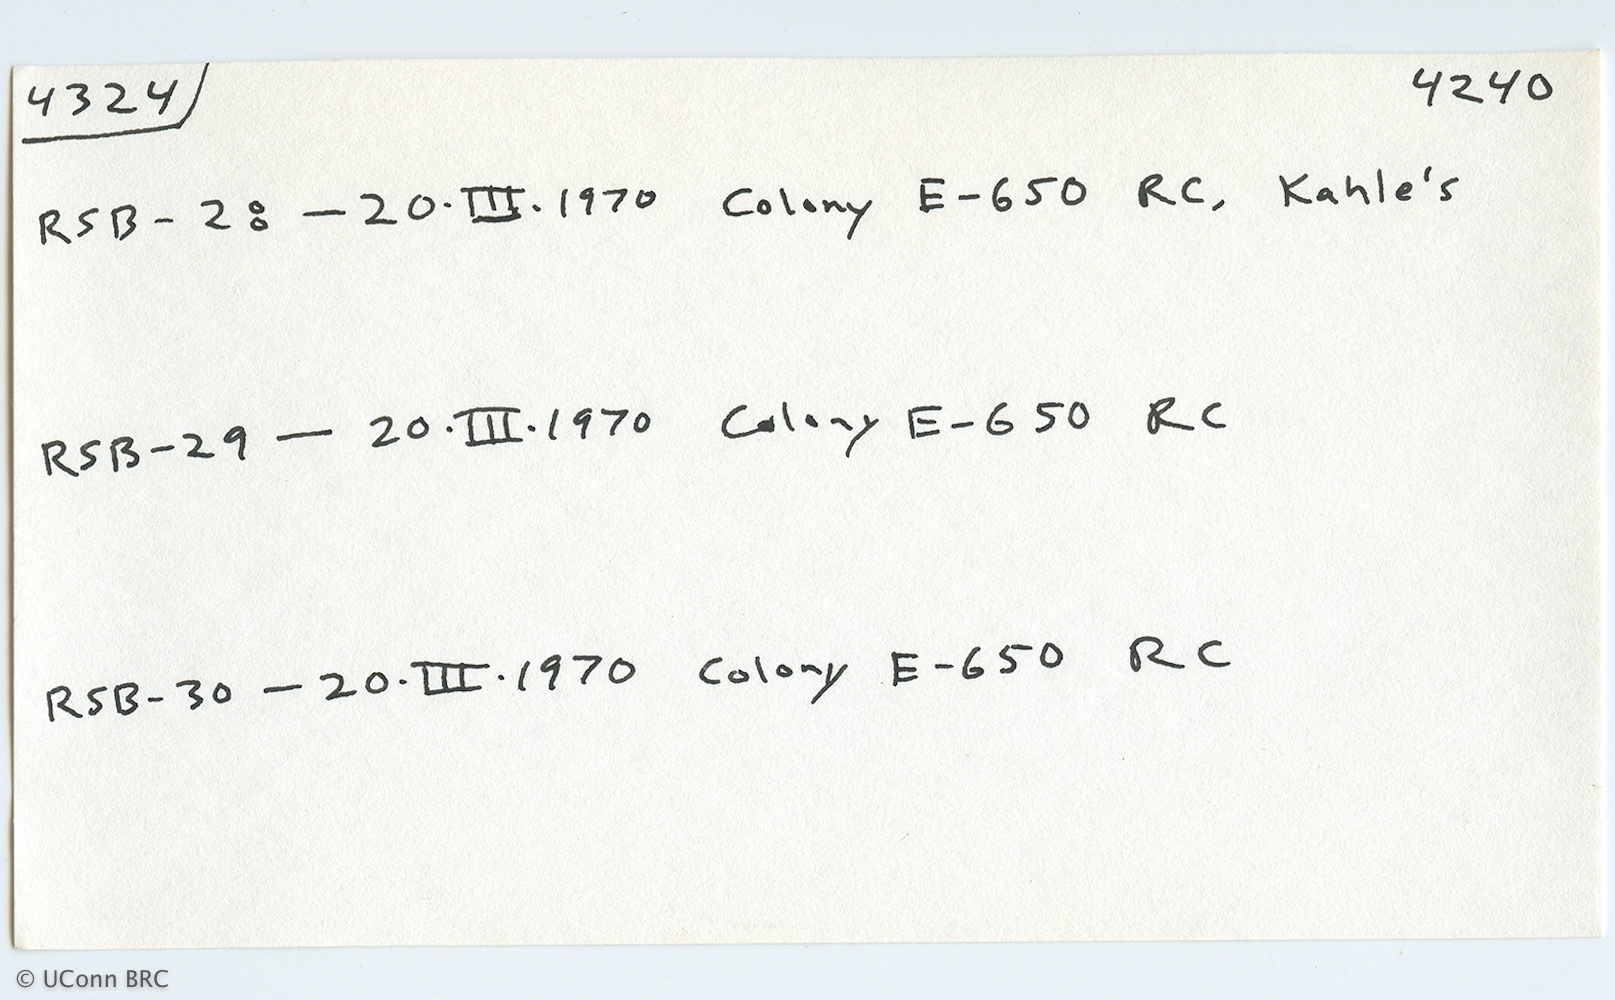 4324 4240
RSB-28 — 20.III.1970 Colony E-650 RC, Kahle's
RSB-29 — 20.III.1970 Colony E-650 RC
RSB-30 — 20.III.1970 Colony E-650 RC
© UConn BRC